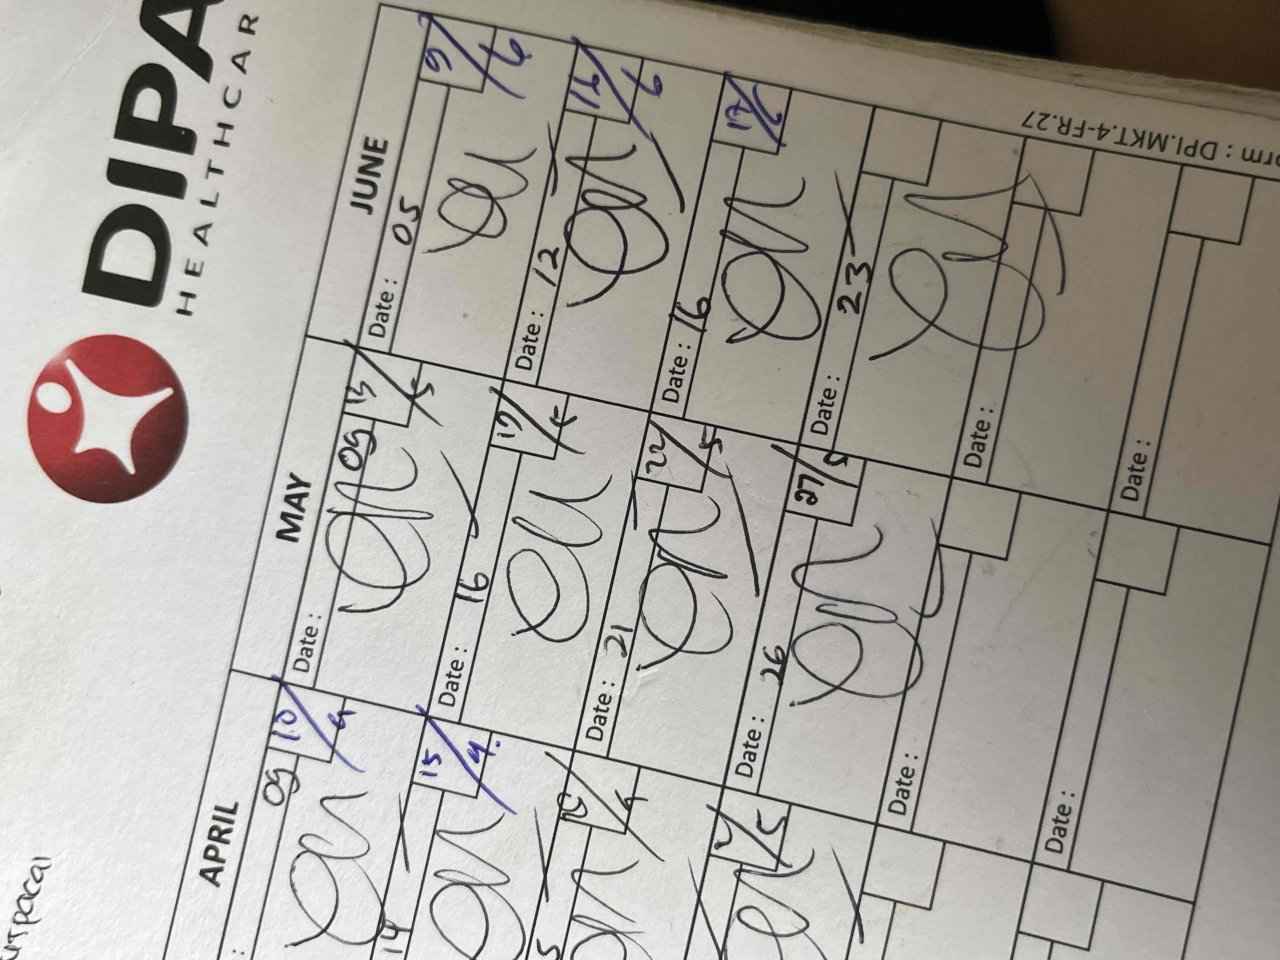 DIPA
HEALTHCAR
orm : DPI.MKT.4-FR.27
APRIL
MAY
JUNE
09
10/4
Date : 09
13/5
Date : 05
9/6
14
15/4.
Date : 16
19/5
Date : 12
16/6
Date : 21
22/5
Date : 16
17/6
5
Date : 26
27/5
Date : 23
Date :
Date :
Date :
Date :